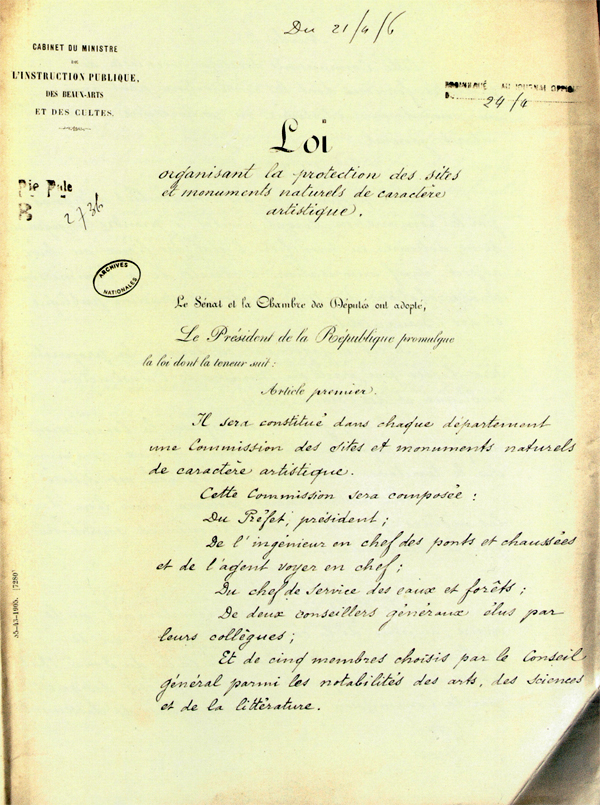 Du 21/4/6
CABINET DU MINISTRE
DE
L'INSTRUCTION PUBLIQUE,
DES BEAUX-ARTS
ET DES CULTES.
AU JOURNAL OFFICIEL
24/4
Loi
organisant la protection des sites
et monuments naturels de caractère
artistique.
B
2736
ARCHIVES
NATIONALES
Le Sénat et la Chambre des Députés ont adopté,
Le Président de la République promulgue
la loi dont la teneur suit :
Article premier.
Il sera constitué dans chaque département
une Commission des sites et monuments naturels
de caractère artistique.
Cette Commission sera composée :
Du Préfet, président ;
De l'ingénieur en chef des ponts et chaussées
et de l'agent voyer en chef ;
Du chef de service des eaux et forêts ;
De deux conseillers généraux élus par
leurs collègues ;
Et de cinq membres choisis par le Conseil
général parmi les notabilités des arts, des sciences
et de la littérature.